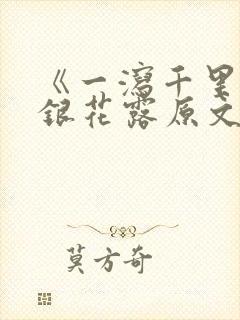 《一泻千里
银花露原文
莫方奇